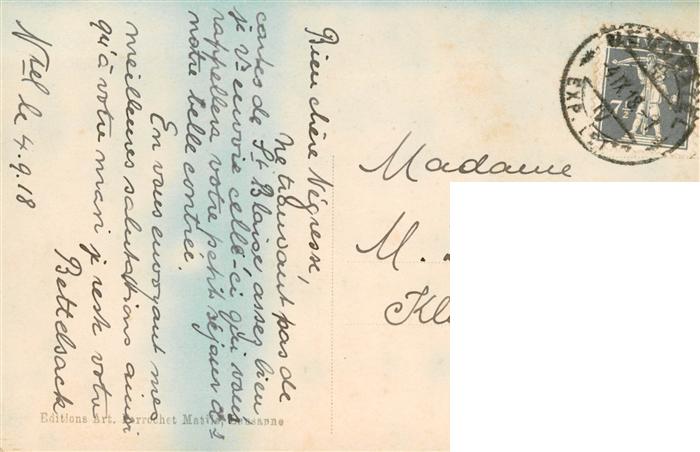 Bien chère Négresse,
Ne trouvant pas de
cartes de St Blaise assez bien
je Vs envoie celle-ci qui vous
rappellera votre petit séjour ds
notre belle contrée.
En vous envoyant mes
meilleures salutations ainsi
qu'à votre mari je reste votre
Bettelsack
Ntel le 4.9.18
Madame
M.
Editions Art. Perrochet Matile, Lausanne
HELVETIA
7½
EXP. LET.
IV